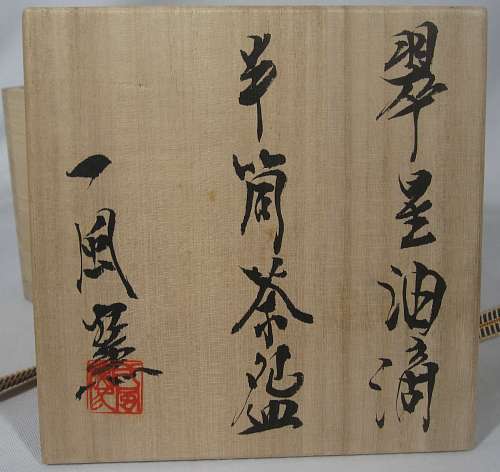 翠星油滴
半筒茶盌
一風窯